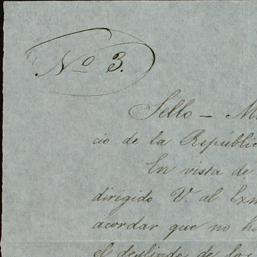 No 3.
Sello — M
cio de la Repúblic
En vista de
dirigido V. al Exm
acordar que no h
el deslinde de la